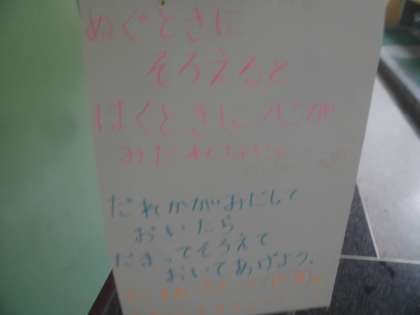 ぬぐときに
そろえると
はくときに心が
みだれない
だれかがみだして
おいたら
だまってそろえて
おいてあげよう。